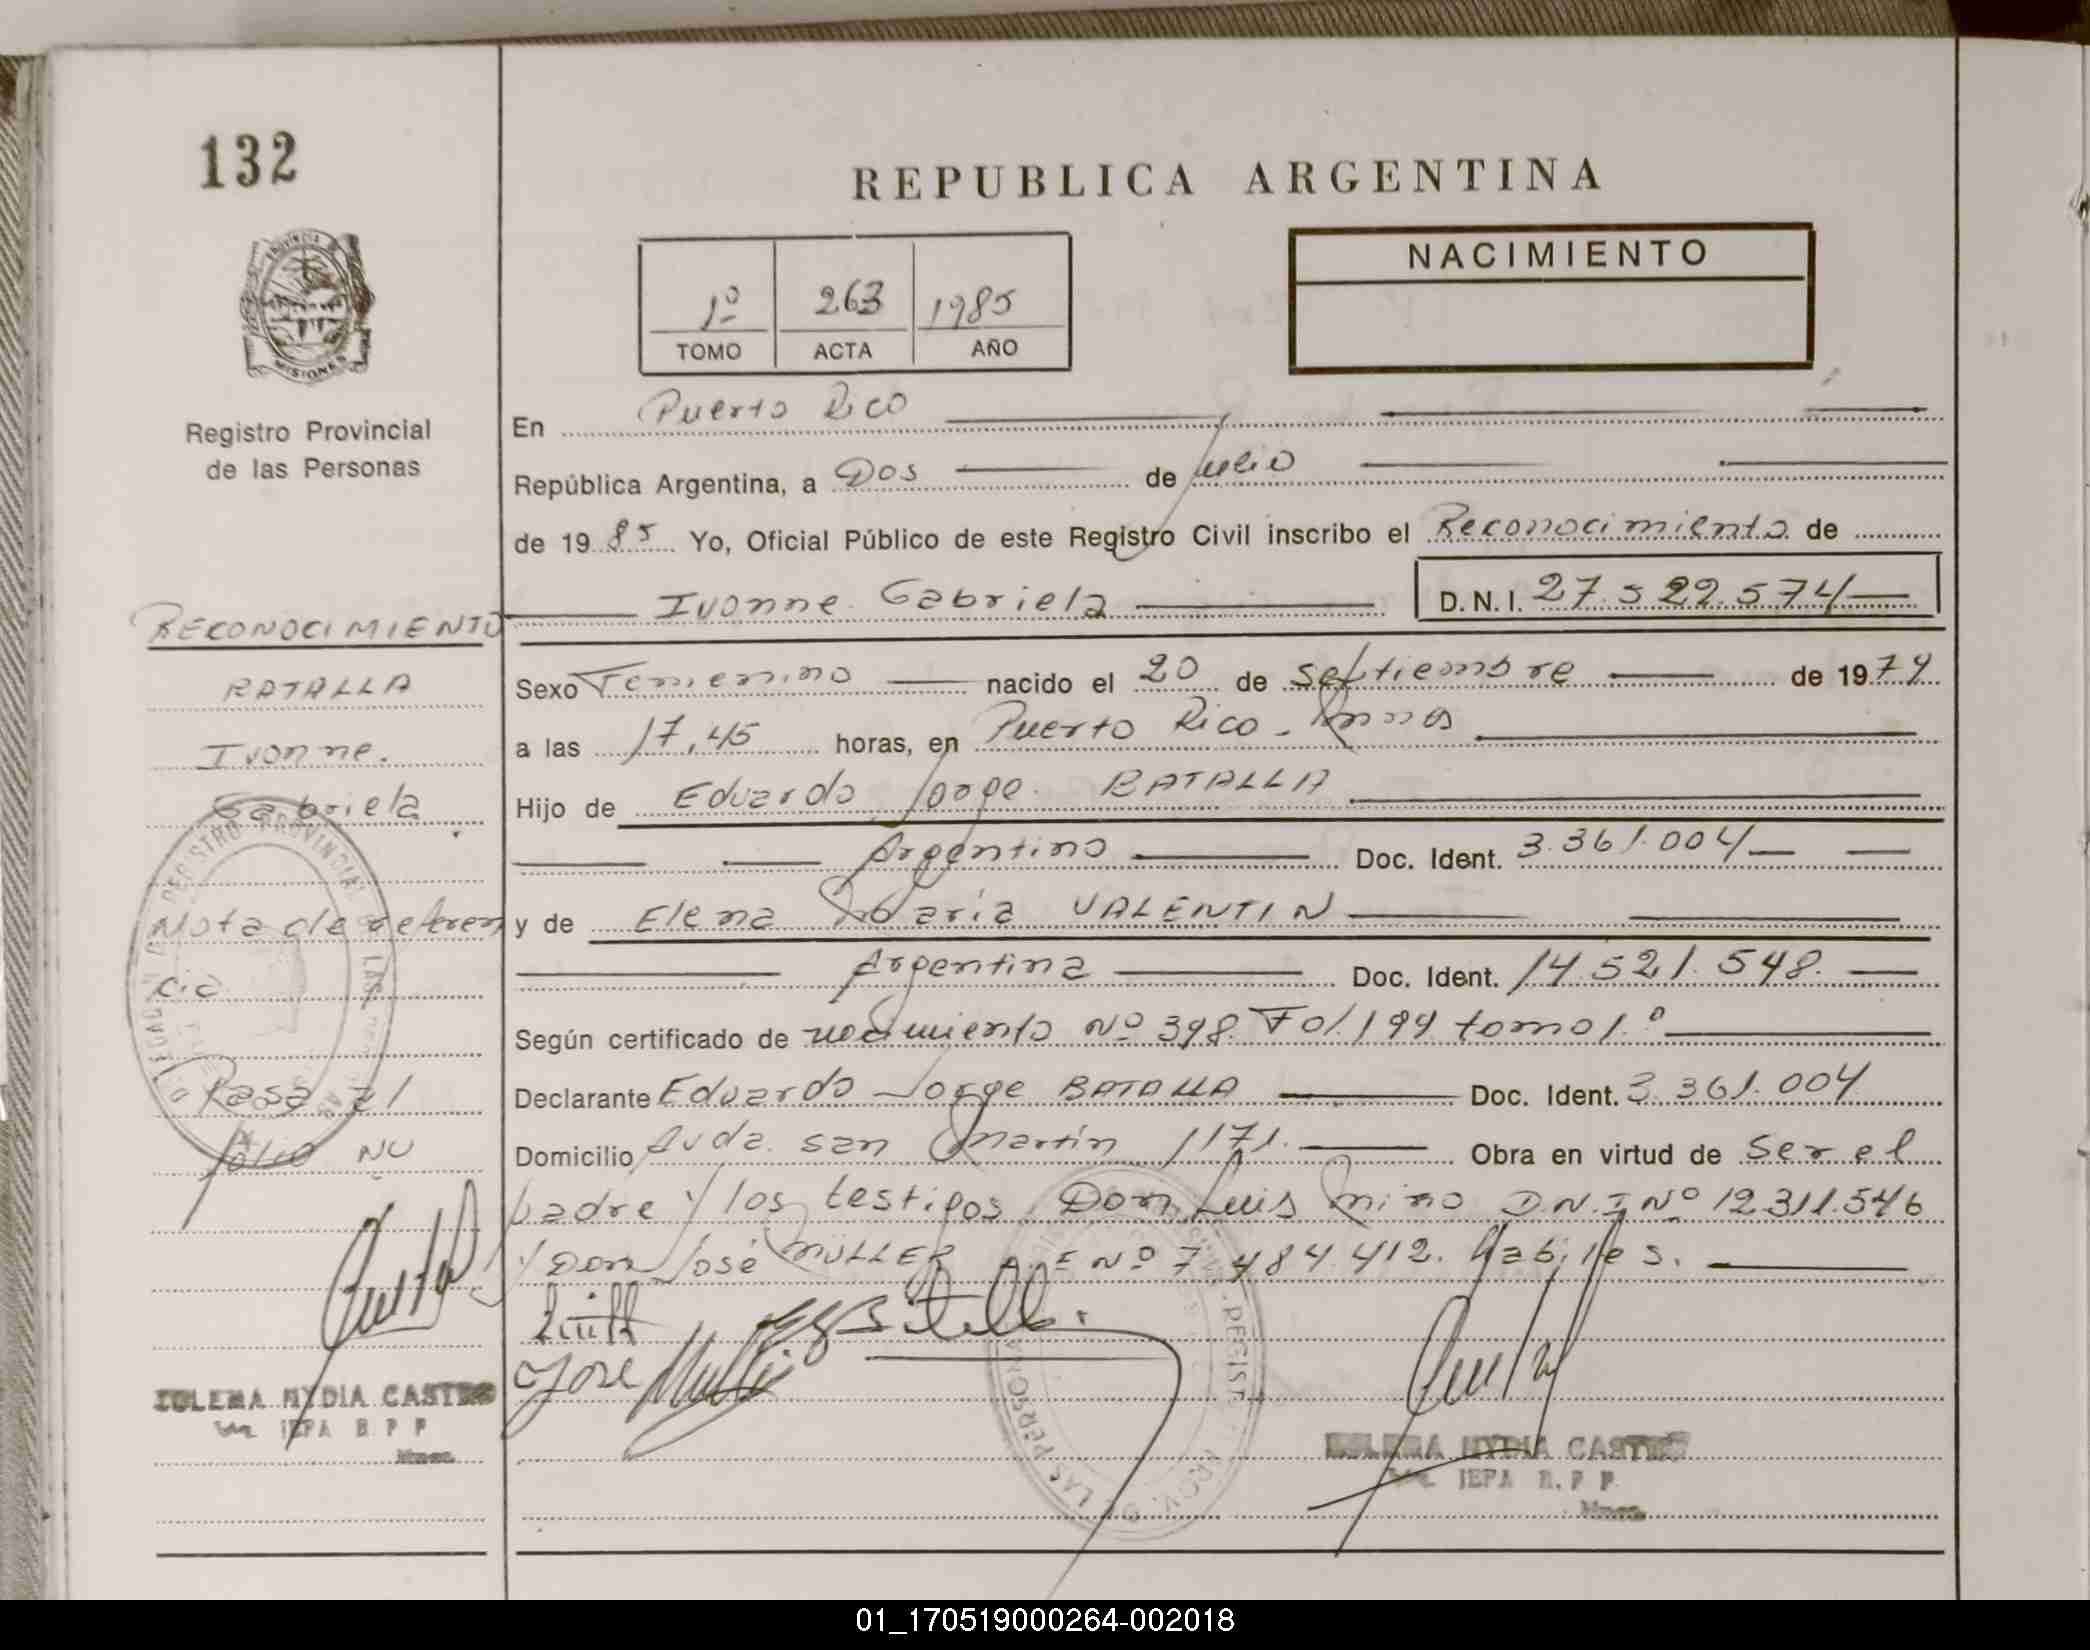 132
PROVINCIA DE MISIONES
Registro Provincial
de las Personas
RECONOCIMIENTO
BATALLA
Ivonne.
Gabriela
Nota de referen
cia
Pasa al
folio NU
MYDIA CASTRO
REPUBLICA ARGENTINA
1º 263 1985
TOMO ACTA AÑO
NACIMIENTO
En Puerto Rico
República Argentina, a Dos de Julio
de 1985 Yo, Oficial Público de este Registro Civil inscribo el Reconocimiento de
Ivonne Gabriela D.N.I. 27.522.574
Sexo Femenino nacido el 20 de Septiembre de 1979
a las 17,45 horas, en Puerto Rico - Mnes
Hijo de Eduardo Jorge BATALLA
Argentino Doc. Ident. 3.361.004
y de Elena María VALENTIN
Argentina Doc. Ident. 14.521.548.
Según certificado de nacimiento Nº 398. Fol. 199 tomo 1.º
Declarante Eduardo Jorge BATALLA Doc. Ident. 3.361.004
Domicilio Avda. San Martín 1171. Obra en virtud de Ser el
padre y los testigos Don Luis Miño D.N.I Nº 12.311.546
y Don José MÜLLER Nº 7.484.412. Habiles.
José Müller
MYDIA CASTRO
01_170519000264-002018